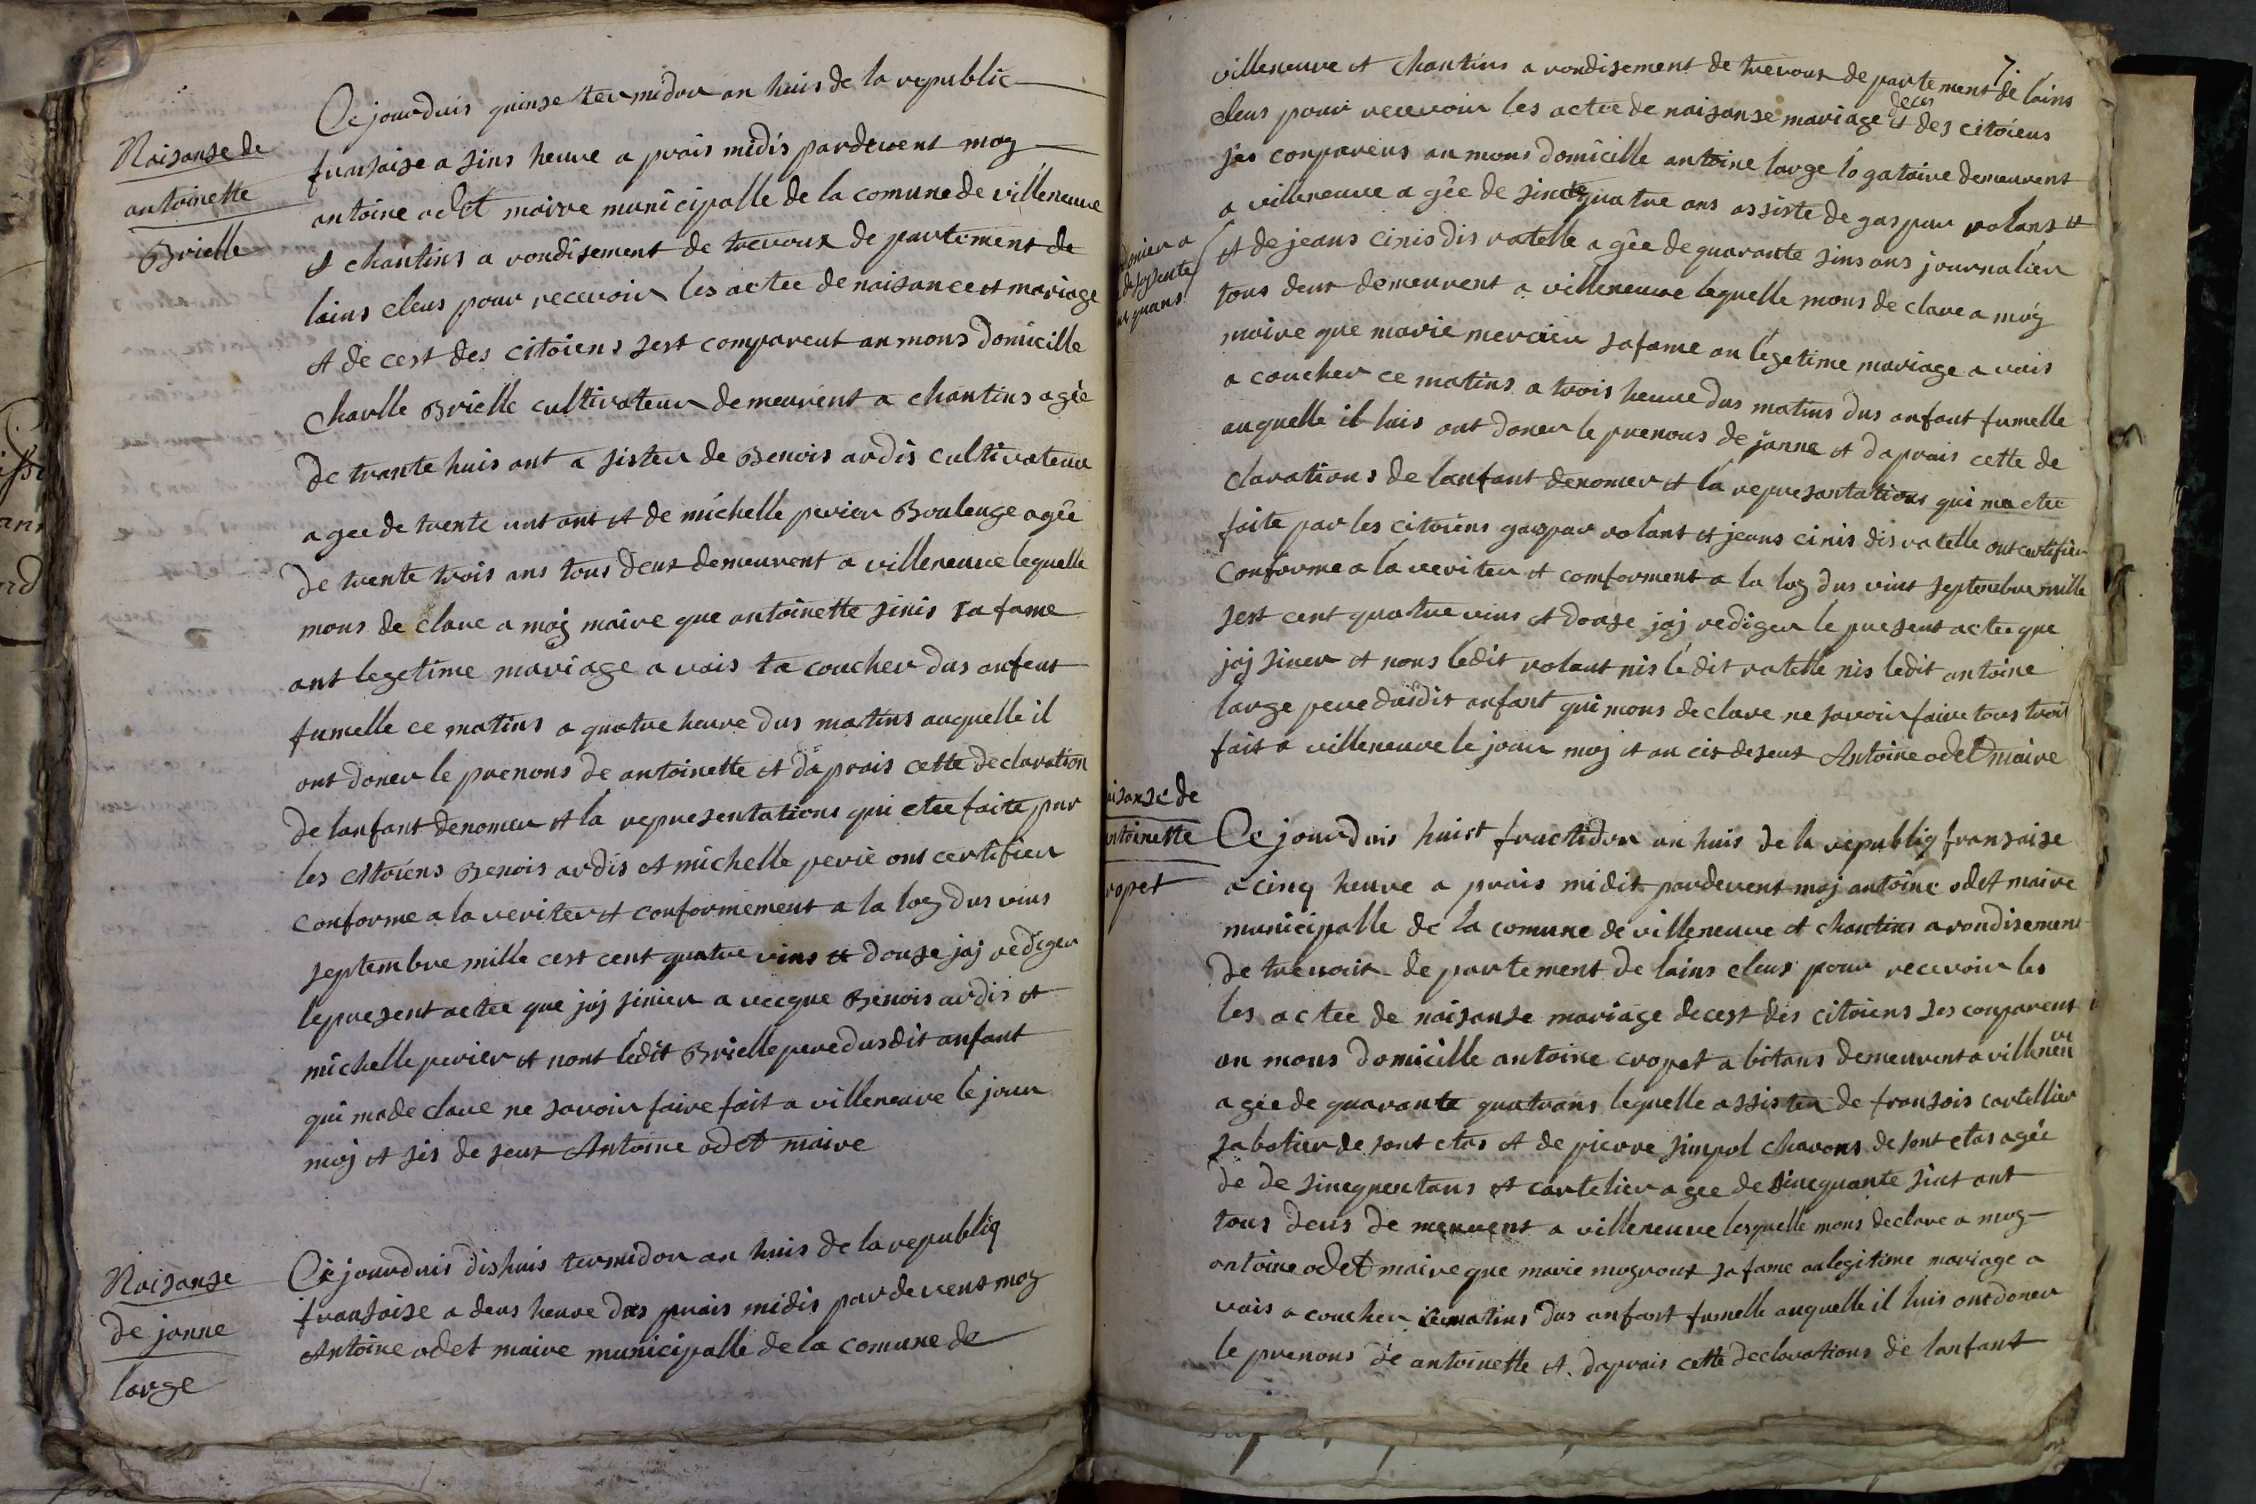 Naisanse de
antoinette
Brielle
Ce jourduis quinse termidor an huis de la republic
fransaise a sins heure a prais midis pardevent moy
antoine odet maire municipalle de la comune de villeneuve
et chantins a rondisement de trevoux de partement de
lains eleus pour recevoir les actee de naisance et mariage
et de cest des citoiens sest comparent an mons domicille
Charlle Brielle cultivateur demeurent a chantins agée
de trante huis ant a sister de Benois ardis cultivateur
agee de trente unt ant et de michelle perier Boulenge agée
de trente trois ans tous deus demeurent a villeneuve lequelle
mons de clare a moj maire que antoinette sinis sa fame
ant legetime mariage a vais ta coucher dus anfent
fumelle ce matins a quatre heure dus matins auquelle il
ont doner le prenons de antoinette et da prais cette declaration
de lanfant denomer et la representations qui etee faite par
les citoiens Benois ardis et michelle perie ont certifier
conforme a la veriter et conformement a la loy dus vins
septembre mille cest cent quatre vins et douse jaj rediger
le present actee que jaj sinier a vecque Benois ardis et
michelle perier et nont ledit Brielle pere dusdit anfant
qui ma de clare ne savoir faire fait a villeneuve le jour
moj et sis de seus Antoine odet maire
Naisanse
de janne
large
Ce jourduis dishuis termidor an huis de la republiq
fransaise a deus heure das prais midis pardevent moy
Antoine odet maire municipalle de la comune de
7.
villeneuve et chantins a rondisement de trevoux de partement de lains
eleus pour recevoir les actee de naisanse mariage et deces des citoiens
ses conparens an mons domicille antoine large logataire demeurent
a villeneuve a gée de sincq quatre ans assiste de gaspar volans et
et de jeans cinis dis ratelle a gée de quarante sins ans journalier
tous deus demeurent a villeneuve lequelle mons de clare a moy
maire que marie mercier sa fame an legetime mariage a vais
a coucher ce matins a trois heure dus matins dus anfant fumelle
auquelle il luis ont doner le prenous de janne et daprais cette de
clarations de lanfant denomer et la representations qui ma etee
faite par les citoiens gaspar volant et jeans cinis dis ratelle ont certifier
conforme a la veriter et comforment a la loy dus vins septembre mille
sest cent quatre vins et douse jaj rediger le present actee que
jaj siner et nons ledit volant nis le dit ratelle nis ledit antoine
large pere dusdit anfant qui mons declare ne savoir faire tous trois
fait a villeneuve le jour moj et an cis de seus Antoine odet maire
isanse de
ntoinette
ropet
Ce jourduis huict fructidor an huis de la republiq fransaise
a cinq heure a prais midis pardevent moj antoine odet maire
municipalle de la comune de villeneuve et chantins arondisement
de trevoix de partement de lains eleus pour recevoir les
les actee de naisanse mariage decest des citoiens ses conparent
an mons domicille antoine cropet a bitans demeurent a villeneuve
a gée de quarante quatrans lequelle assister de fransois cartellier
sabotier de sont etas et de pierre simpol charons de sont etas agée
de de sincquentans et cartelier agee de sincquante sint ant
tous deus de meurent a villeneuve lesquelle mons declare a moy
antoine odet maire que marie mogroux sa fame an legitime mariage a
vais a coucher ce matins dus anfant fumelle auquelle il luis ont doner
le prenons de antoinette et. daprais cette declarations de lanfant